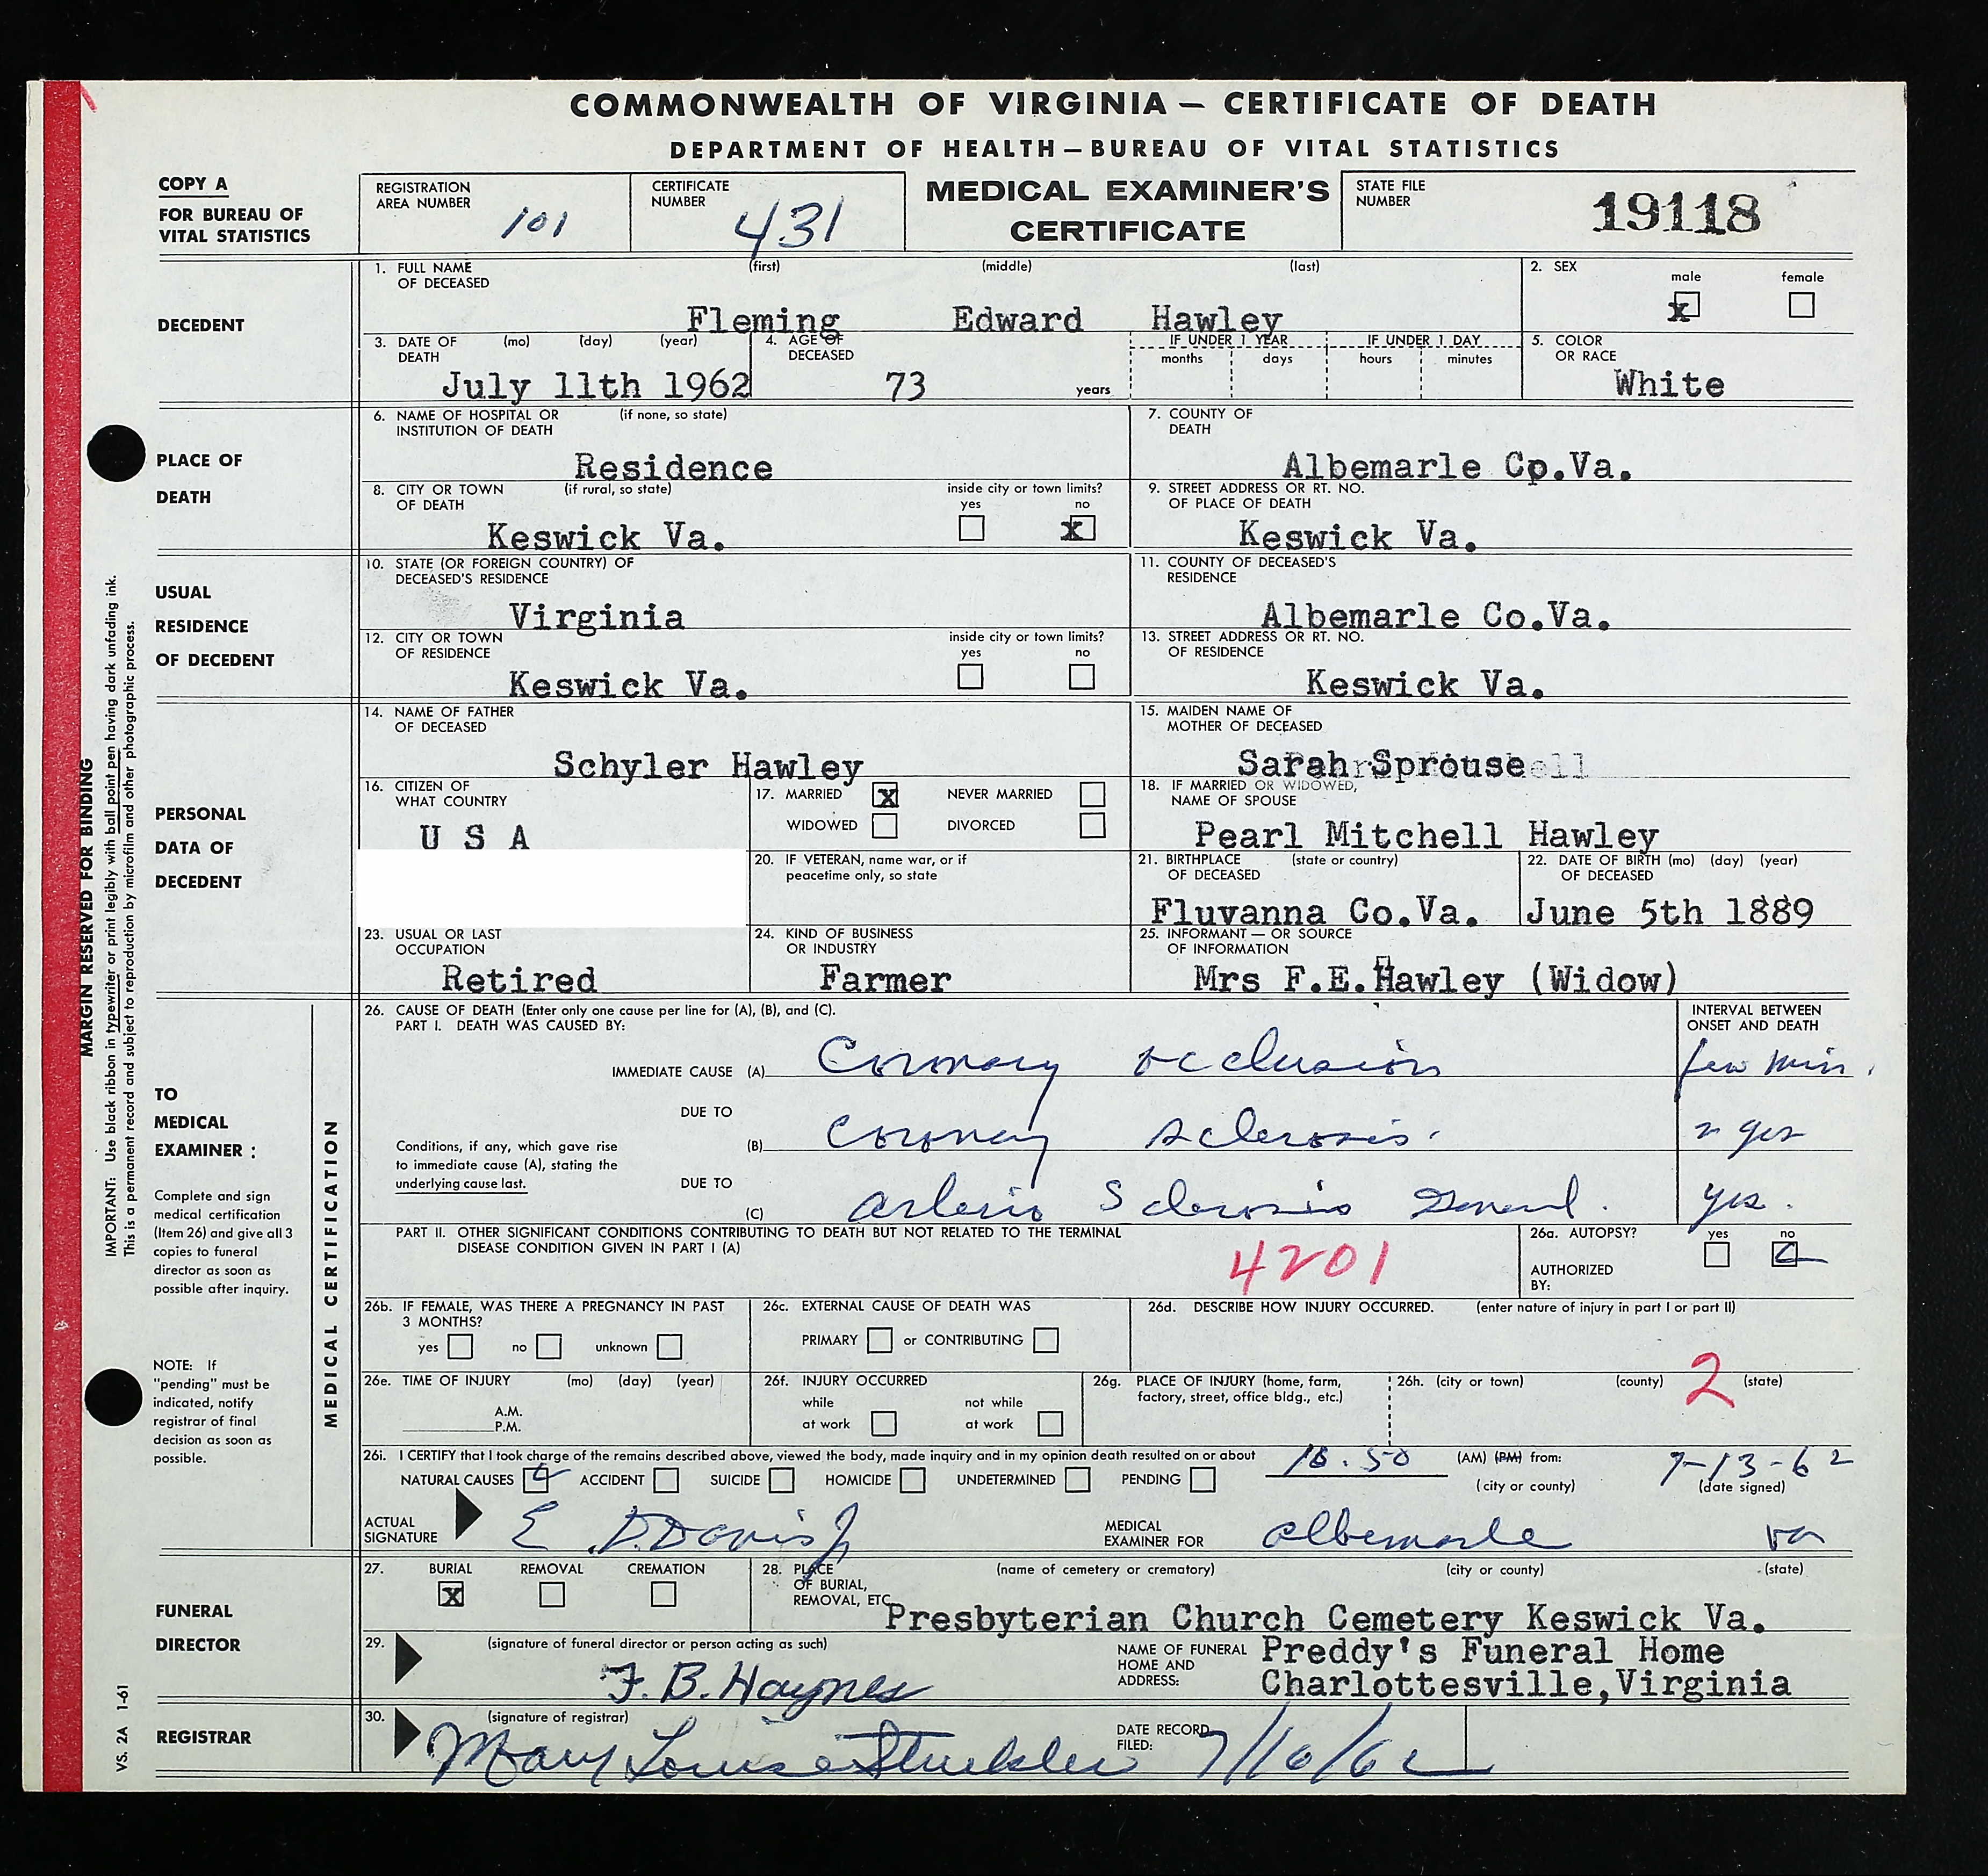 COMMONWEALTH OF VIRGINIA — CERTIFICATE OF DEATH
DEPARTMENT OF HEALTH — BUREAU OF VITAL STATISTICS
COPY A
FOR BUREAU OF
VITAL STATISTICS
REGISTRATION
AREA NUMBER
101
CERTIFICATE
NUMBER
431
MEDICAL EXAMINER'S
CERTIFICATE
STATE FILE
NUMBER
19118
DECEDENT
1. FULL NAME (first) (middle) (last)
OF DECEASED
Fleming Edward Hawley
2. SEX
male female
x
3. DATE OF (mo) (day) (year)
DEATH
July 11th 1962
4. AGE OF
DECEASED
73 years
IF UNDER 1 YEAR IF UNDER 1 DAY
months days hours minutes
5. COLOR
OR RACE
White
PLACE OF
DEATH
6. NAME OF HOSPITAL OR (if none, so state)
INSTITUTION OF DEATH
Residence
7. COUNTY OF
DEATH
Albemarle Co.Va.
8. CITY OR TOWN (if rural, so state) inside city or town limits?
OF DEATH yes no
Keswick Va. x
9. STREET ADDRESS OR RT. NO.
OF PLACE OF DEATH
Keswick Va.
USUAL
RESIDENCE
OF DECEDENT
10. STATE (OR FOREIGN COUNTRY) OF
DECEASED'S RESIDENCE
Virginia
11. COUNTY OF DECEASED'S
RESIDENCE
Albemarle Co.Va.
12. CITY OR TOWN inside city or town limits?
OF RESIDENCE yes no
Keswick Va.
13. STREET ADDRESS OR RT. NO.
OF RESIDENCE
Keswick Va.
PERSONAL
DATA OF
DECEDENT
14. NAME OF FATHER
OF DECEASED
Schyler Hawley
15. MAIDEN NAME OF
MOTHER OF DECEASED
Sarah Sprouse
16. CITIZEN OF
WHAT COUNTRY
U S A
17. MARRIED X NEVER MARRIED
WIDOWED DIVORCED
18. IF MARRIED OR WIDOWED,
NAME OF SPOUSE
Pearl Mitchell Hawley
20. IF VETERAN, name war, or if
peacetime only, so state
21. BIRTHPLACE (state or country)
OF DECEASED
Fluvanna Co.Va.
22. DATE OF BIRTH (mo) (day) (year)
OF DECEASED
June 5th 1889
23. USUAL OR LAST
OCCUPATION
Retired
24. KIND OF BUSINESS
OR INDUSTRY
Farmer
25. INFORMANT — OR SOURCE
OF INFORMATION
Mrs F.E.Hawley (Widow)
TO
MEDICAL
EXAMINER :
Complete and sign
medical certification
(Item 26) and give all 3
copies to funeral
director as soon as
possible after inquiry.
NOTE: If
"pending" must be
indicated, notify
registrar of final
decision as soon as
possible.
MEDICAL CERTIFICATION
26. CAUSE OF DEATH (Enter only one cause per line for (A), (B), and (C).
PART I. DEATH WAS CAUSED BY:
INTERVAL BETWEEN
ONSET AND DEATH
IMMEDIATE CAUSE (A) Coronary occlusion few min.
DUE TO
Conditions, if any, which gave rise
to immediate cause (A), stating the
underlying cause last.
(B) Coronary sclerosis. 2 yrs
DUE TO
(C) Arterio Sclerosis General. yrs.
PART II. OTHER SIGNIFICANT CONDITIONS CONTRIBUTING TO DEATH BUT NOT RELATED TO THE TERMINAL
DISEASE CONDITION GIVEN IN PART I (A)
4201
26a. AUTOPSY? yes no
AUTHORIZED
BY:
26b. IF FEMALE, WAS THERE A PREGNANCY IN PAST
3 MONTHS?
yes no unknown
26c. EXTERNAL CAUSE OF DEATH WAS
PRIMARY or CONTRIBUTING
26d. DESCRIBE HOW INJURY OCCURRED. (enter nature of injury in part I or part II)
26e. TIME OF INJURY (mo) (day) (year)
A.M.
P.M.
26f. INJURY OCCURRED
while not while
at work at work
26g. PLACE OF INJURY (home, farm,
factory, street, office bldg., etc.)
26h. (city or town) (county) (state)
2
26i. I CERTIFY that I took charge of the remains described above, viewed the body, made inquiry and in my opinion death resulted on or about (AM) (PM) from: 7-13-62
NATURAL CAUSES ACCIDENT SUICIDE HOMICIDE UNDETERMINED PENDING (city or county) (date signed)
ACTUAL
SIGNATURE
E. D. Davis Jr
MEDICAL
EXAMINER FOR
Albemarle Va
FUNERAL
DIRECTOR
27. BURIAL REMOVAL CREMATION
X
28. PLACE (name of cemetery or crematory) (city or county) (state)
OF BURIAL,
REMOVAL, ETC.
Presbyterian Church Cemetery Keswick Va.
29. (signature of funeral director or person acting as such)
F. B. Haynes
NAME OF FUNERAL
HOME AND
ADDRESS:
Preddy's Funeral Home
Charlottesville,Virginia
REGISTRAR
30. (signature of registrar)
Mary Louise
DATE RECORD
FILED:
7/16/62
MARGIN RESERVED FOR BINDING
IMPORTANT: Use black ribbon in typewriter or print legibly with ball point pen having dark unfading ink.
This is a permanent record and subject to reproduction by microfilm and other photographic process.
VS. 2A 1-61